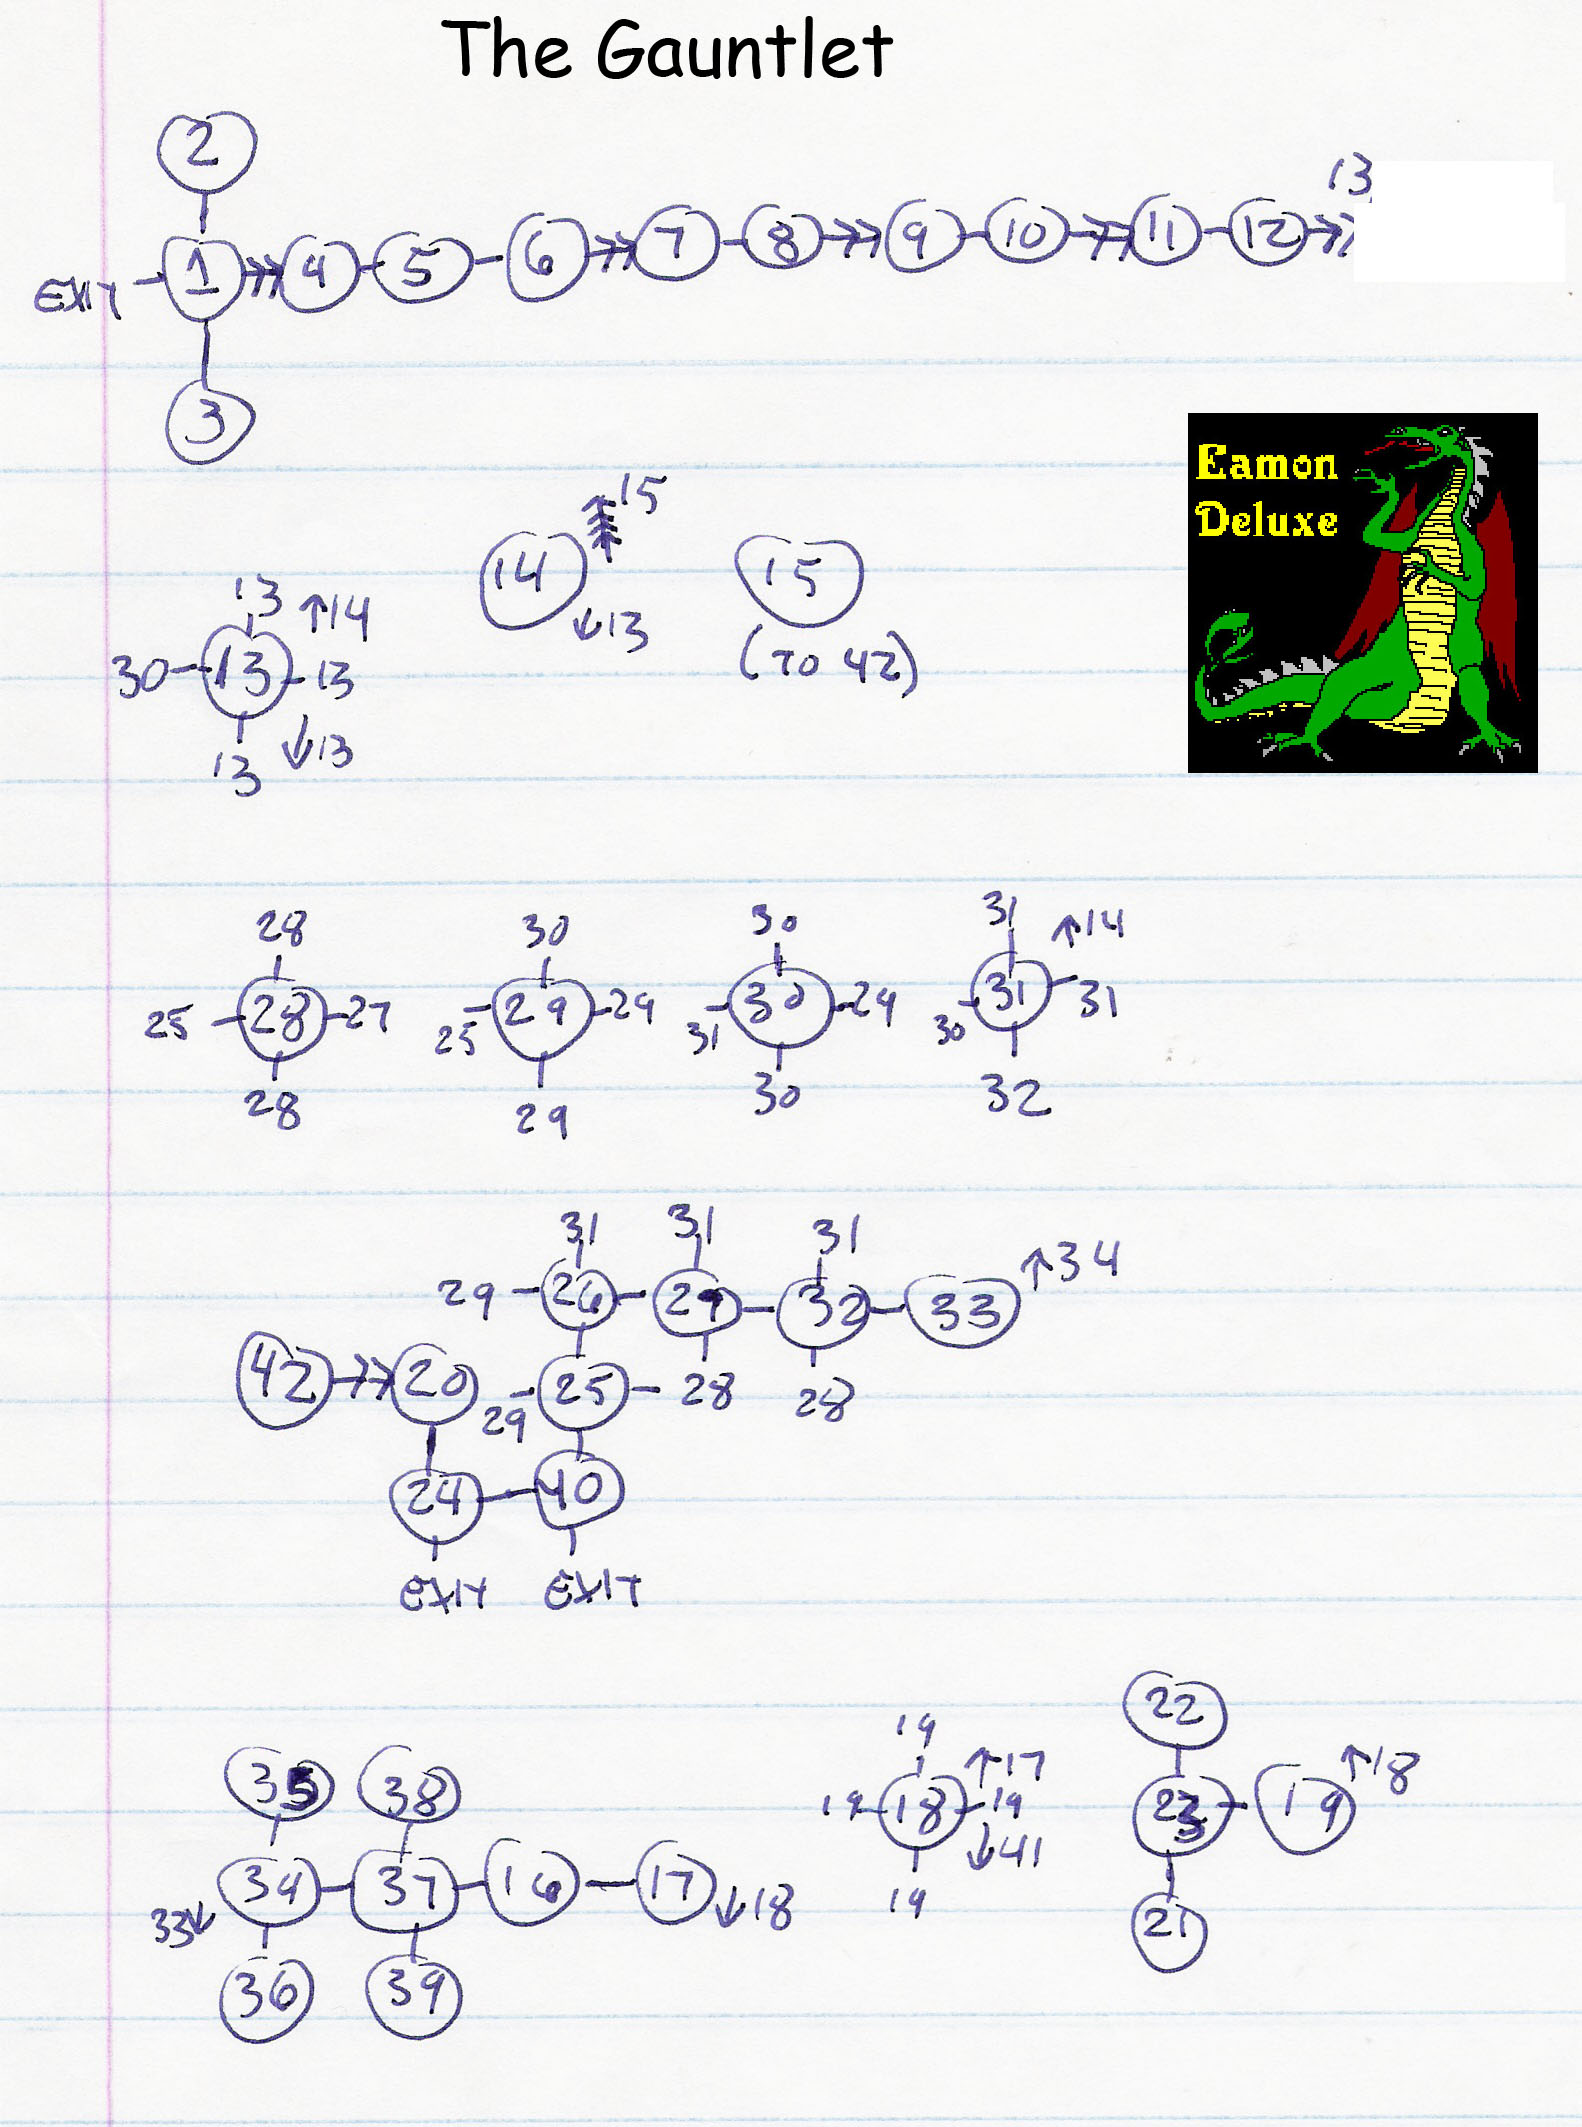 The Gauntlet
2
13
EXIT 1 4 5 6 7 8 9 10 11 12
3
Eamon
Deluxe
15
14 15
13 14 13 (TO 42)
30 13 13
13 13
28 30 30 31 14
25 28 27 25 29 29 31 30 29 30 31 31
28 29 30 32
31 31 31
29 26 29 32 33 34
42 20 29 25 28 28
24 40
EXIT EXIT
22
35 38 19 17 18
19 18 19 23 19
41
34 37 16 17 18 19
33 21
36 39